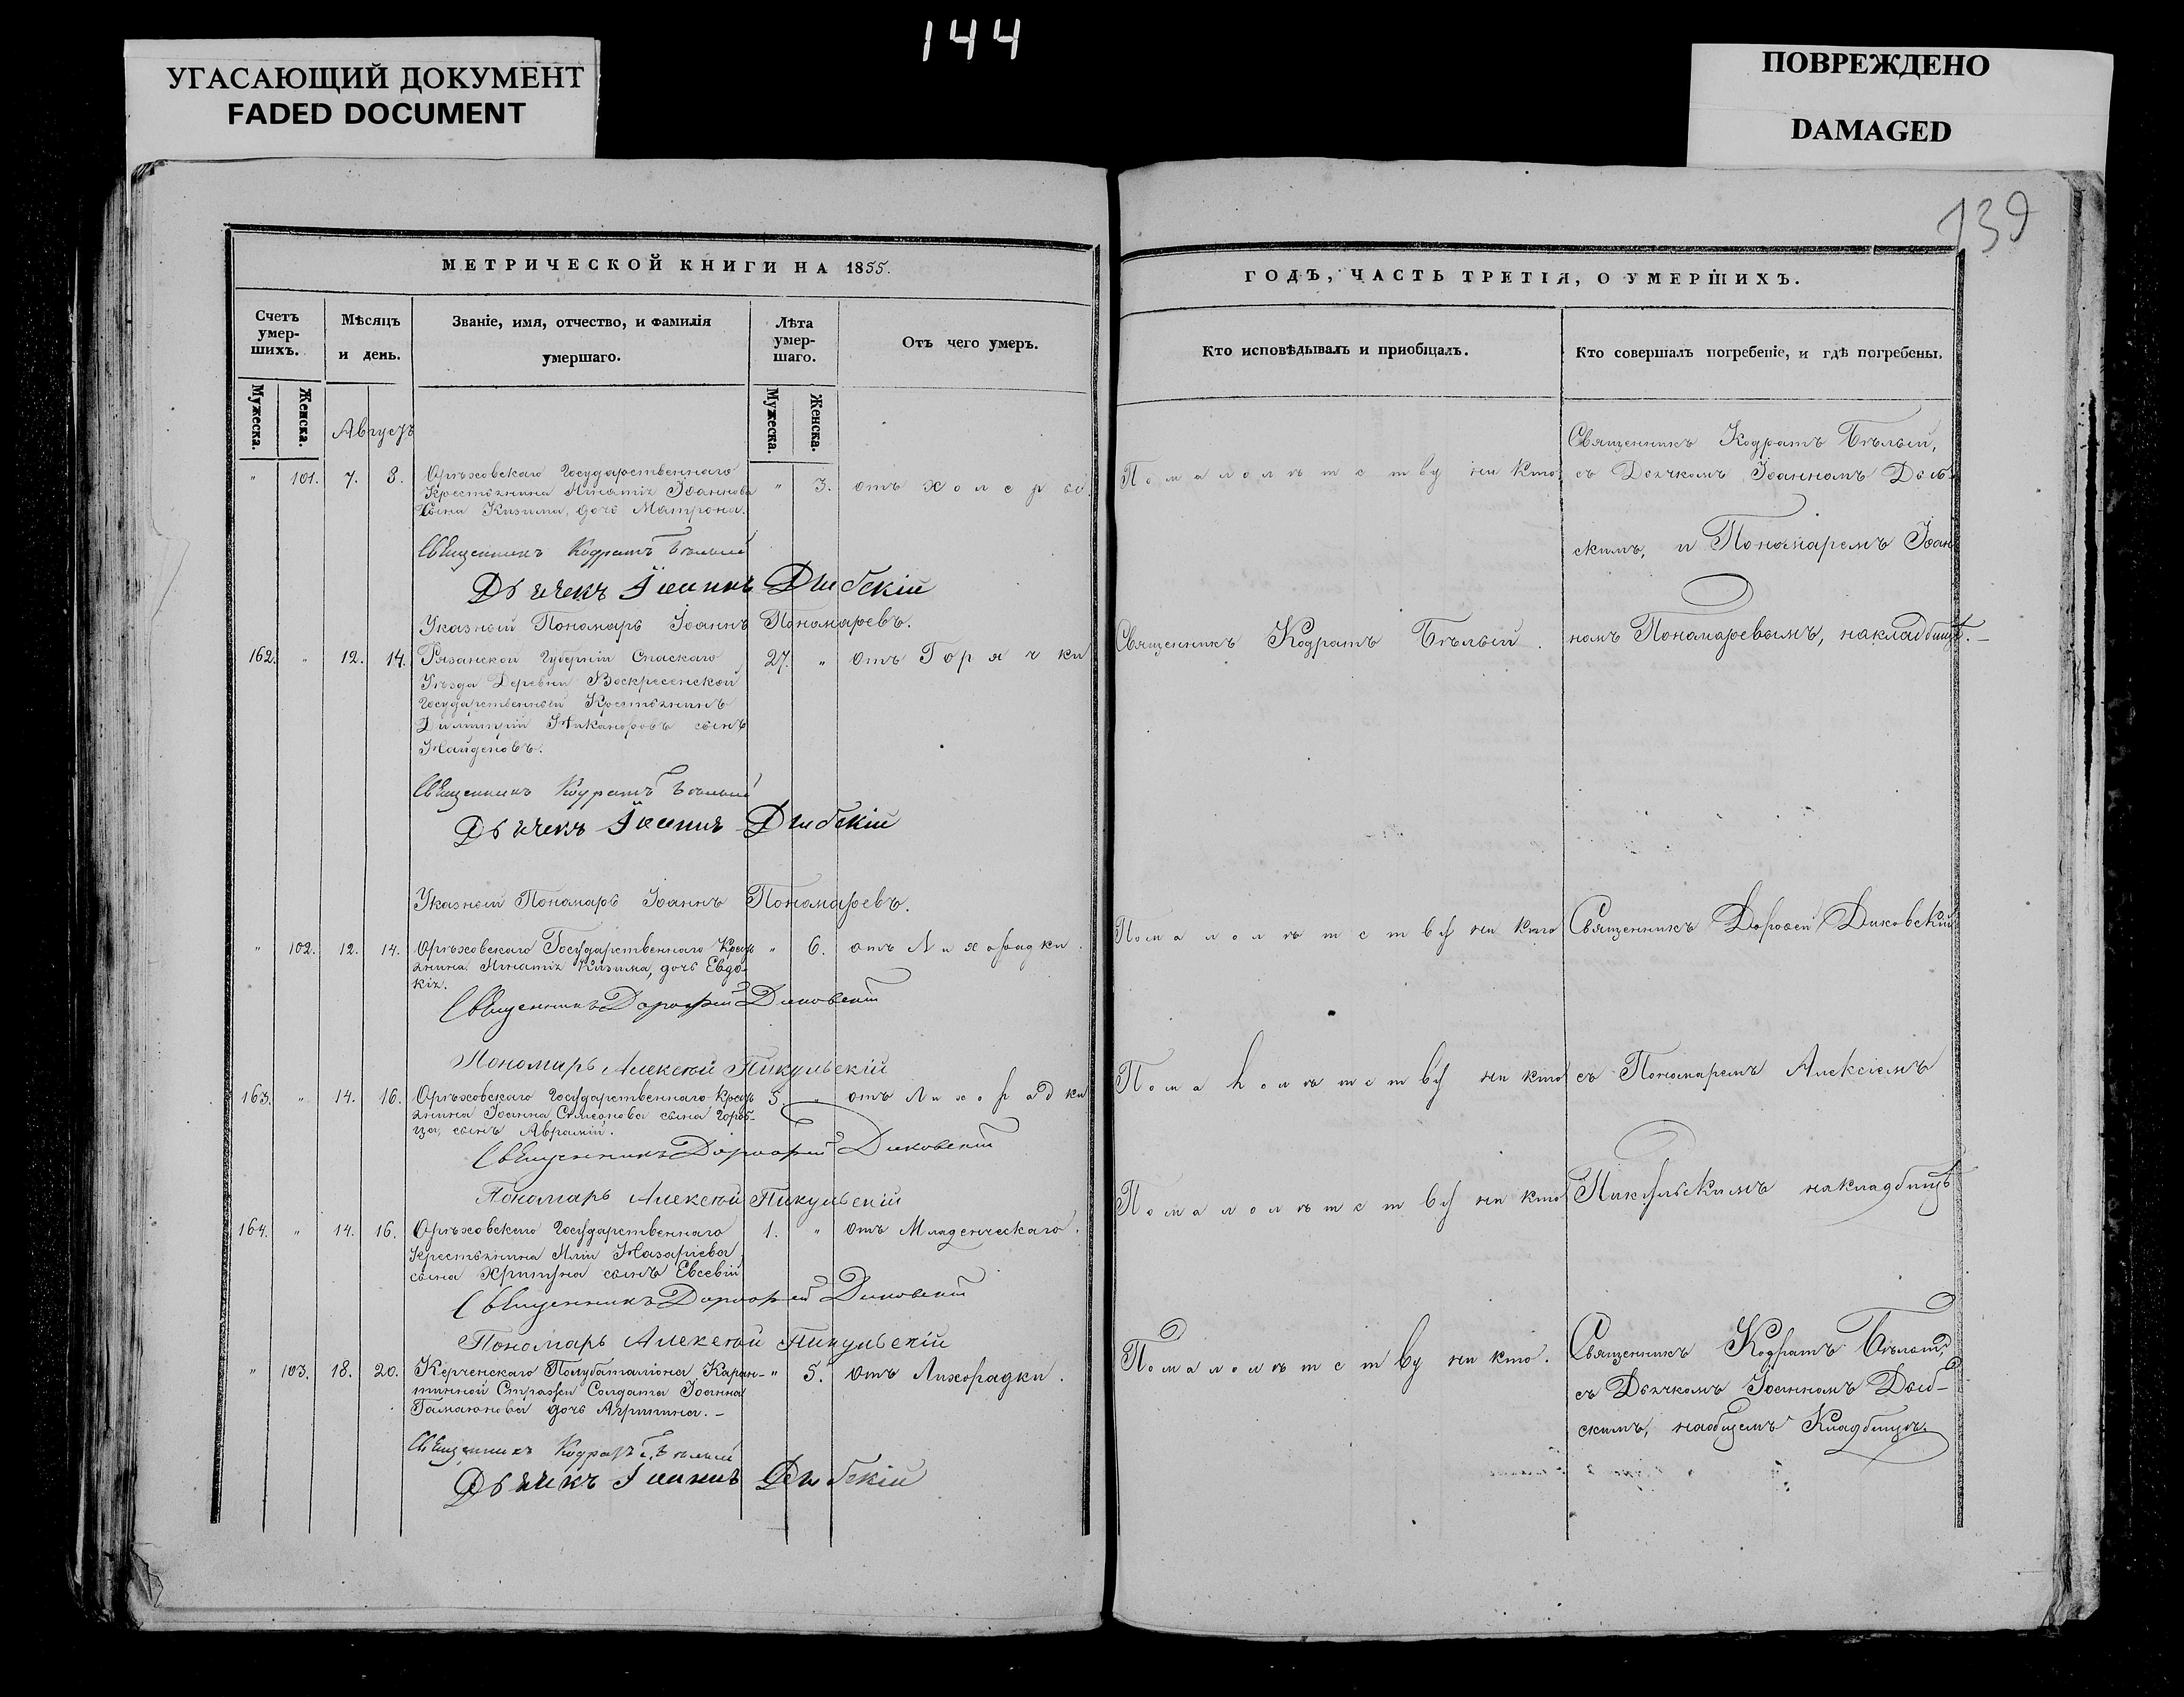 144
УГАСАЮЩИЙ ДОКУМЕНТ
FADED DOCUMENT
ПОВРЕЖДЕНО
DAMAGED
139
МЕТРИЧЕСКОЙ КНИГИ НА 1855.
Счетъ умер-шихъ.
Мѣсяцъ и день.
Званіе, имя, отчество, и фамилія умершаго.
Лѣта умер-шаго.
Отъ чего умеръ.
Мужеска.
Женска.
Мужеска.
Женска.
Августъ
" 101. 7. 8. Орѣховскаго Государственнаго " 3. отъ холеры.
Крестьянина Игнатія Іоаннова
сына Кизима, дочь Матрона.
Священникъ Кодратъ Бѣлый
Дьячекъ Іоаннъ
Указный Пономарь Іоаннъ Пономаревъ.
162. " 12. 14. Рязанской Губерніи Спаскаго 27. " отъ Горячки
Уѣзда Деревни Воскресенской
Государственный Крестьянинъ
Димитрій Никаноровъ сынъ
Найденовъ.
Священникъ Кодратъ Бѣлый
Дьячекъ Іоаннъ
Указный Пономарь Іоаннъ Пономаревъ.
" 102. 12. 14. Орѣховскаго Государственнаго Кресть " 6. отъ Лихорадки.
янина Игнатія Кизима, дочь Евдо-
кія.
Священникъ Дорофей Диковскій
Пономарь Алексѣй Пикульскій
163. " 14. 16. Орѣховскаго Государственнаго Кресть 5. " отъ Лихорадки
янина Іоанна Симеонова сына Гороб-
ца, сынъ Аврамій.
Священникъ Дорофей Диковскій
Пономарь Алексѣй Пикульскій
164. " 14. 16. Орѣховскаго Государственнаго 1. " отъ Младенческаго.
Крестьянина Иліи Назаріева
сына Хрипуна сынъ Евсевій
Священникъ Дорофей Диковскій
Пономарь Алексѣй Пикульскій
" 103. 18. 20. Керченскаго Полубаталіона Каран- " 5. отъ Лихорадки.
тинной Стражи Солдата Іоанна
Гамаюнова дочь Агрипина.-
Священникъ Кодратъ Бѣлый
Дьячекъ Іоаннъ
ГОДЪ, ЧАСТЬ ТРЕТІЯ, О УМЕРШИХЪ.
Кто исповѣдывалъ и приобщалъ.
Кто совершалъ погребеніе, и гдѣ погребены.
Священникъ Кодратъ Бѣлый,
По малолѣтству ни кто. съ Дьячкомъ Іоанномъ
скимъ, и Пономаремъ Іоан
Священникъ Кодратъ Бѣлый. номъ Пономаревымъ, на кладбищѣ.-
По малолѣтству ни кто Священникъ Дорофей Диковскій
По малолѣтству ни кто съ Пономаремъ Алексіемъ
По малолѣтству ни кто Пикульскимъ на кладбищѣ
По малолѣтству ни кто. Священникъ Кодратъ Бѣлый,
съ Дьячкомъ Іоанномъ
скимъ, на общемъ Кладбищѣ.